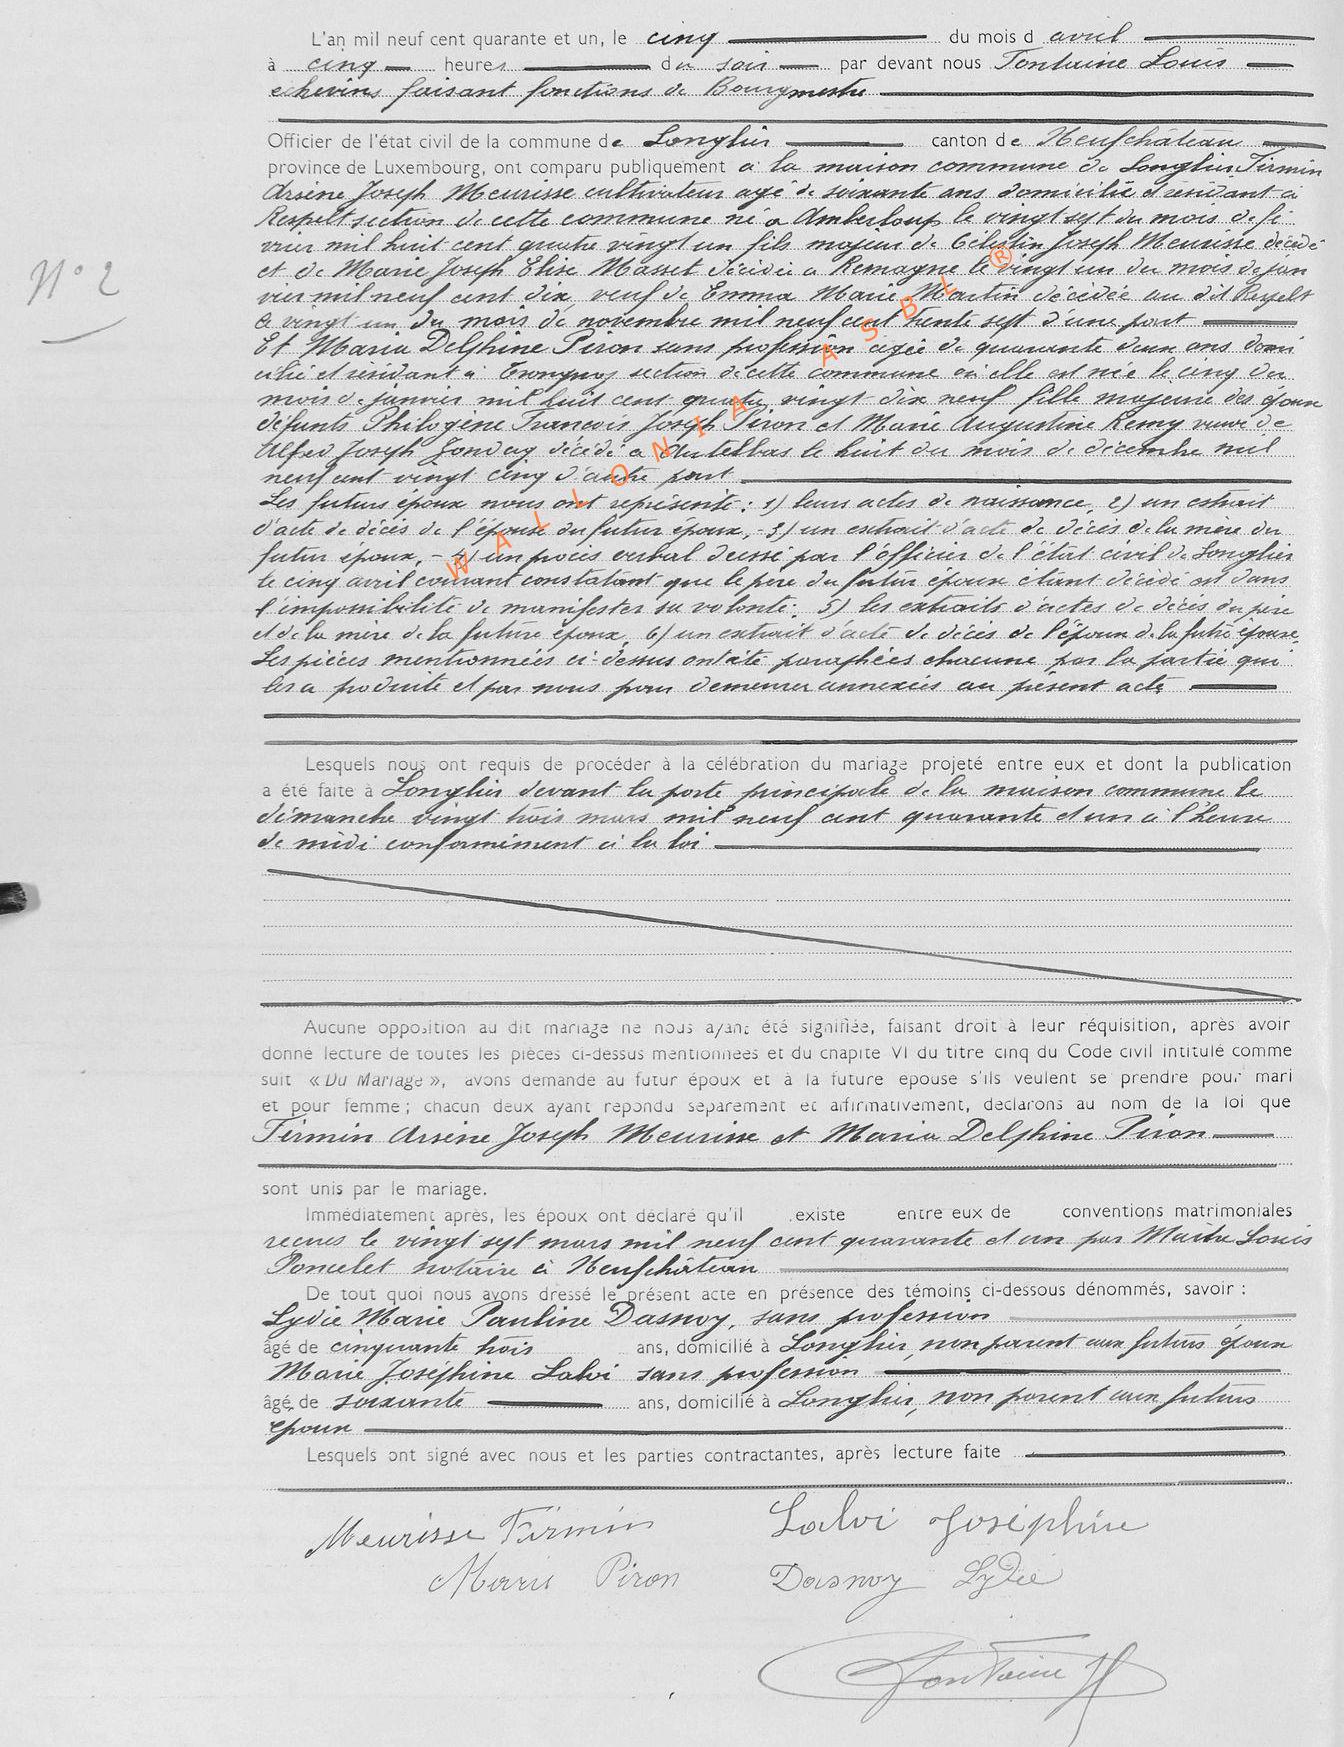 L'an mil neuf cent quarante et un, le cinq du mois d avril
à cinq heures du soir par devant nous Fontaine Louis
échevins faisant fonctions de Bourgmestre
Officier de l'état civil de la commune de Longlier canton de Neufchâteau
province de Luxembourg, ont comparu publiquement à la maison commune de Longlier Firmin
Arsène Joseph Meurisse cultivateur agé de soixante ans domicilié et résidant à
Respelt section de cette commune né à Amberloup le vingt sept du mois de fé
N° 2
vrier mil huit cent quatre vingt un fils majeur de Célestin Joseph Meurisse décédé
et de Marie Joseph Elise Masset décédée à Remagne le vingt un du mois de jan
vier mil neuf cent dix, veuf de Emma Marie Martin décédée au dit Respelt
le vingt un du mois de novembre mil neuf cent trente sept d'une part
Et Maria Delphine Piron sans profession agée de quarante deux ans domi
ciliée et résidant à section de cette commune où elle est née le cinq du
mois de janvier mil huit cent quatre vingt dix neuf fille majeure des époux
défunts Philogène Francois Joseph Piron et Marie Augustine Remy veuve de
Alfred Joseph décédé à Autelbas le huit du mois de décembre mil
neuf cent vingt cinq d'autre part
Les futurs époux nous ont représenté : 1) leurs actes de naissance, 2) un extrait
d'acte de décès de l'épouse du futur époux, - 3) un extrait d'acte de décès de la mère du
futur époux, - 4) un procès verbal dressé par l'officier de l'état civil de Longlier
le cinq avril courant constatant que le père du futur époux étant décédé est dans
l'impossibilité de manifester sa volonté. 5) les extraits d'actes de décès du père
et de la mère de la future épouse, 6) un extrait d'acte de décès de l'époux de la future épouse.
Les pièces mentionnées ci-dessus ont été paraphées chacune par la partie qui
les a produite et par nous pour demeurer annexées au présent acte
WALLONIA ASBL ®
Lesquels nous ont requis de procéder à la célébration du mariage projeté entre eux et dont la publication
a été faite à Longlier devant la porte principale de la maison commune le
dimanche vingt trois mars mil neuf cent quarante et un à l'heure
de midi conformément à la loi
Aucune opposition au dit mariage ne nous ayant été signifiée, faisant droit à leur réquisition, après avoir
donné lecture de toutes les pièces ci-dessus mentionnées et du chapite VI du titre cinq du Code civil intitulé comme
suit « Du Mariage », avons demandé au futur époux et à la future épouse s'ils veulent se prendre pour mari
et pour femme ; chacun deux ayant répondu séparement et affirmativement, déclarons au nom de la loi que
Firmin Arsène Joseph Meurisse et Maria Delphine Piron
sont unis par le mariage.
Immédiatement après, les époux ont déclaré qu'il existe entre eux de conventions matrimoniales
recues le vingt sept mars mil neuf cent quarante et un par Maître Louis
Poncelet notaire à Neufchâteau
De tout quoi nous avons dressé le présent acte en présence des témoins ci-dessous dénommés, savoir :
Lydie Marie Pauline Dasnoy, sans profession
âgé de cinquante trois ans, domicilié à Longlier, non parent aux futurs époux
Marie Joséphine Lalvi sans profession
âgé de soixante ans, domicilié à Longlier, non parent aux futurs
époux
Lesquels ont signé avec nous et les parties contractantes, après lecture faite
Meurisse Firmin Lalvi Joséphine
Marie Piron Dasnoy Lydie
Fontaine